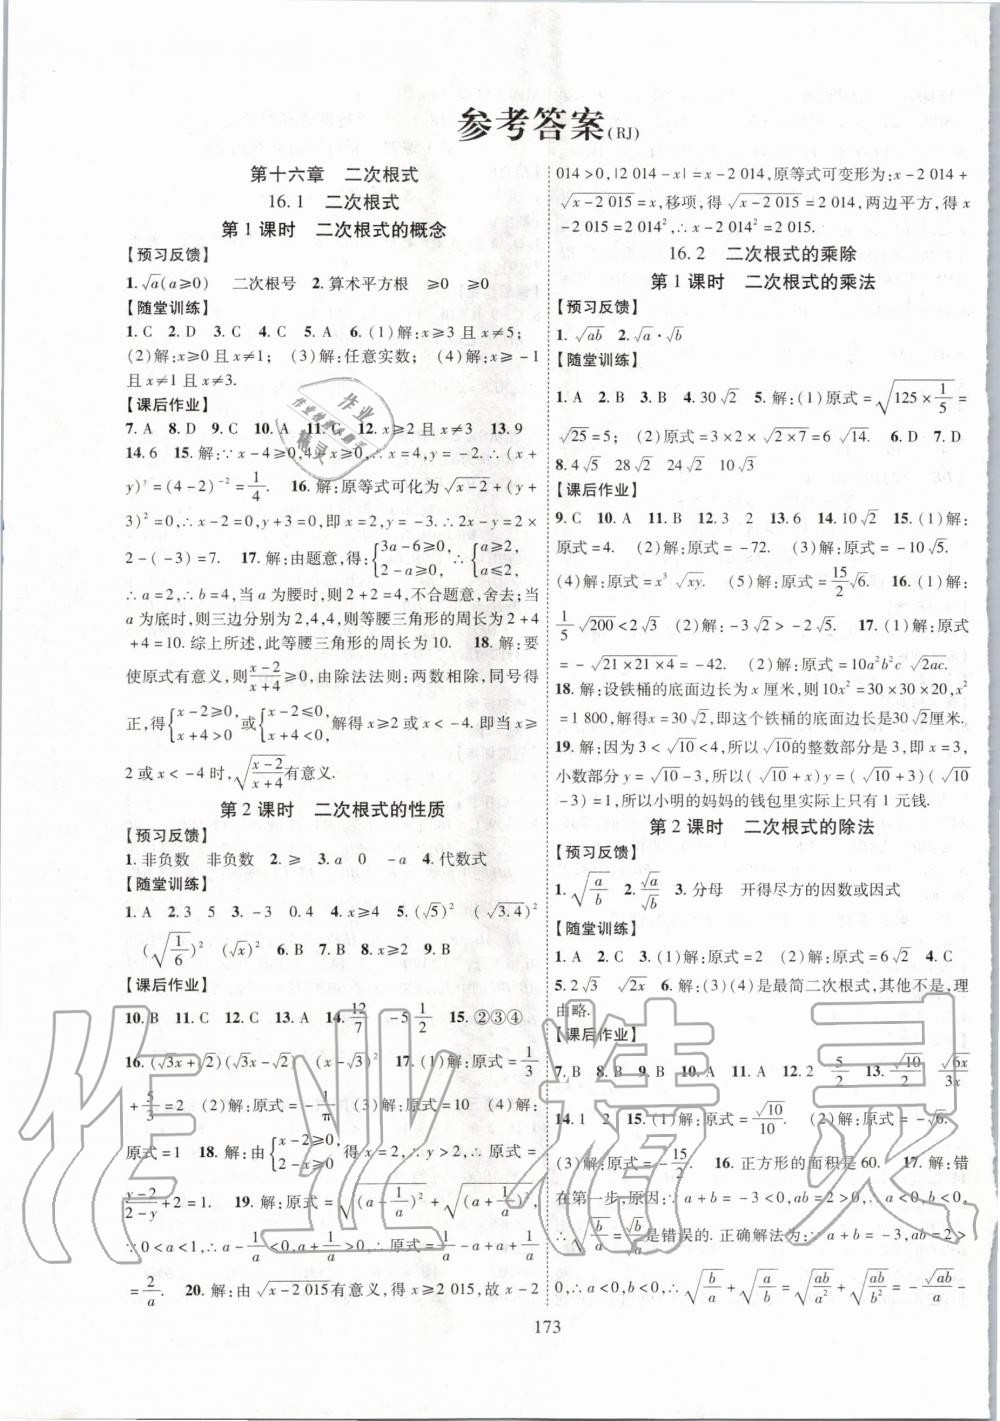 参考答案(RJ)
第十六章　二次根式
16.1　二次根式
第1课时　二次根式的概念
【预习反馈】
1.√a(a≥0)　二次根号　2.算术平方根　≥0　≥0
【随堂训练】
1.C　2.D　3.C　4.C　5.A　6.(1)解:x≥3且x≠5;
(2)解:x≥0且x≠1;　(3)解:任意实数;　(4)解:x≥-1
且x≠1且x≠3.
【课后作业】
7.A　8.D　9.C　10.A　11.C　12.x≥2且x≠3　13.9
14.6　15.解:∵x-4≥0,4-x≥0,∴x=4,y=-2.∴(x+
y)^y=(4-2)^-2=1/4.　16.解:原等式可化为√(x-2)+(y+
3)²=0,∴x-2=0,y+3=0,即x=2,y=-3.∴2x-y=2×
2-(-3)=7.　17.解:由题意,得:{3a-6≥0,2-a≥0,∴{a≥2,a≤2,
∴a=2,∴b=4,当a为腰时,则2+2=4,不合题意,舍去;当
a为底时,则三边分别为2,4,4,则三角形的周长为2+4
+4=10.综上所述,此等腰三角形的周长为10.　18.解:要
使原式有意义,则(x-2)/(x+4)≥0,由除法法则:两数相除,同号得
正,得{x-2≥0,x+4>0或{x-2≤0,x+4<0,解得x≥2或x<-4.即当x≥
2或x<-4时,√((x-2)/(x+4))有意义.
第2课时　二次根式的性质
【预习反馈】
1.非负数　非负数　2.≥　3.a　0　-a　4.代数式
【随堂训练】
1.A　2.3　5　3.-3　0.4　4.x≥4　5.(√5)²　(√3.4)²
(√(1/6))²　(√x)²　6.B　7.B　8.x≥2　9.B
【课后作业】
10.B　11.C　12.C　13.A　14.12/7　-5 1/2　15.②③④
16.(√3x+√2)(√3x-√2)　(x-√3)²　17.(1)解:原式=1/3
+5/3=2　(2)解:原式=-1/π　(3)解:原式=10　(4)解:
原式=1　18.解:由{x-2≥0,2-x≥0,得x=2,∴y>2,∴原式=
(y-2)/(2-y)+2=1.　19.解:原式=√((a-1/a)²)+√((a+1/a)²),
∵0<a<1,∴a-1/a<0,a+1/a>0,∴原式=1/a-a+a+1/a
=2/a.　20.解:由√(x-2 015)有意义,得x≥2 015,故x-2
014>0,|2 014-x|=x-2 014,原等式可变形为:x-2 014+
√(x-2 015)=x,移项,得√(x-2 015)=2 014,两边平方,得x
-2 015=2 014²,∴x-2 014²=2 015.
16.2　二次根式的乘除
第1课时　二次根式的乘法
【预习反馈】
1.√ab　2.√a·√b
【随堂训练】
1.A　2.B　3.B　4.30√2　5.解:(1)原式=√(125×1/5)=
√25=5;　(2)原式=3×2×√(2×7)=6√14.　6.D　7.D
8.4√5　28√2　24√2　10√3
【课后作业】
9.C　10.A　11.B　12.3　2　13.6　14.10√2　15.(1)解:
原式=4.　(2)解:原式=-72.　(3)解:原式=-10√5.
(4)解:原式=x³√xy.　(5)解:原式=15/2√6.　16.(1)解:
1/5√200<2√3　(2)解:-3√2>-2√5.　17.(1)解:原式
=-√(21×21×4)=-42.　(2)解:原式=10a²b²c√2ac.
18.解:设铁桶的底面边长为x厘米,则10x²=30×30×20,x²
=1 800,解得x=30√2,即这个铁桶的底面边长为30√2厘米.
19.解:因为3<√10<4,所以√10的整数部分是3,即x=3,
小数部分y=√10-3,所以(√10+x)y=(√10+3)(√10
-3)=1,所以小明的妈妈的钱包里实际上只有1元钱.
第2课时　二次根式的除法
【预习反馈】
1.√(a/b)　2.√a/√b　3.分母　开得尽方的因数或因式
【随堂训练】
1.A　2.C　3.(1)解:原式=2　(2)解:原式=6√2　4.C
5.2√3　√2x　6.解:(3)(4)是最简二次根式,其他不是,理
由略.
【课后作业】
7.B　8.B　9.B　10.A　11.A　12.2　5/2　13.√10/2　√6x/3x
14.1　2　15.(1)解:原式=√10/10.　(2)解:原式=-√6.
(3)解:原式=-15/2.　16.正方形的面积是60.　17.解:错
在第一步,原因:∵a+b=-3<0,ab=2>0,∴a<0,b<0,
√(a/b)=√a/√b是错误的.正确解法为:∵a+b=-3,ab=2>
0,∴a<0,b<0,∴√(b/a)+√(a/b)=√(ab/a²)+√(ab/b²)=-√ab/a-
173
作业精灵